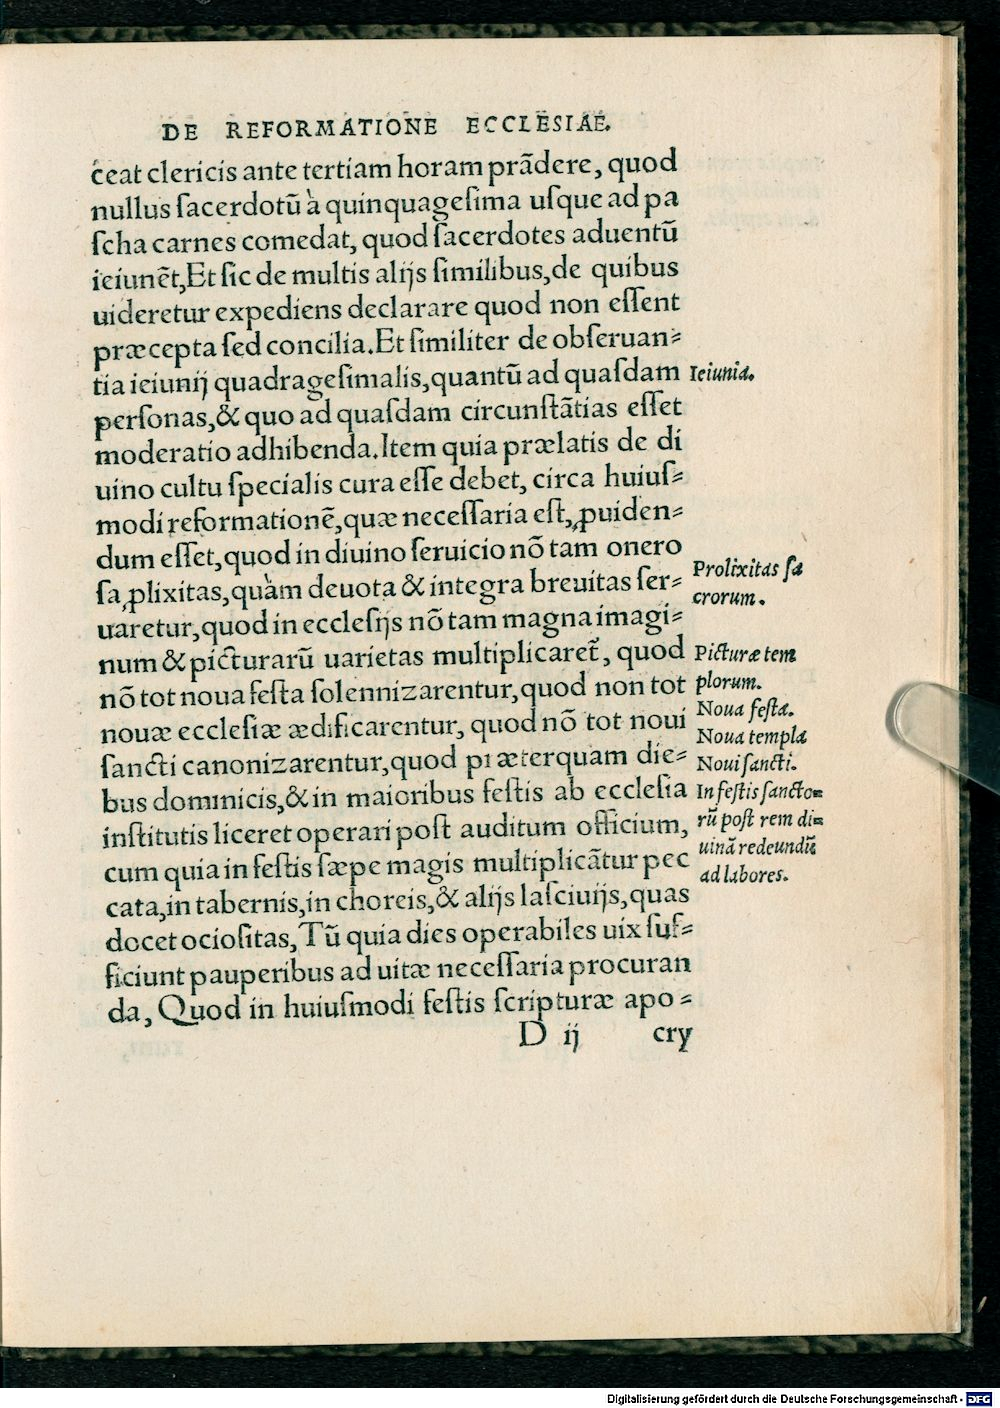 DE REFORMATIONE ECCLESIAE.
ceat clericis ante tertiam horam prãdere, quod
nullus ſacerdotũ à quinquageſima uſque ad pa
ſcha carnes comedat, quod ſacerdotes aduentũ
ieiunẽt, Et ſic de multis alijs ſimilibus, de quibus
uideretur expediens declarare quod non eſſent
præcepta ſed concilia. Et ſimiliter de obſeruan⸗
tia ieiunij quadrageſimalis, quantũ ad quaſdam
Ieiunia.
perſonas, & quo ad quaſdam circunſtãtias eſſet
moderatio adhibenda. Item quia prælatis de di
uino cultu ſpecialis cura eſſe debet, circa huiuſ⸗
modi reformationẽ, quæ neceſſaria eſt, ꝓuiden⸗
dum eſſet, quod in diuino ſeruicio nõ tam onero
ſa ꝓlixitas, quàm deuota & integra breuitas ſer⸗
Prolixitas ſa
crorum.
uaretur, quod in eccleſijs nõ tam magna imagi⸗
num & picturarũ uarietas multiplicaret̃, quod
Picturæ tem
plorum.
nõ tot noua feſta ſolennizarentur, quod non tot
Noua feſta.
nouæ eccleſiæ ædificarentur, quod nõ tot noui
Noua templa
ſancti canonizarentur, quod præterquam die⸗
Noui ſancti.
bus dominicis, & in maioribus feſtis ab eccleſia
In feſtis ſancto⸗
rũ poſt rem di⸗
uinã redeundũ
ad labores.
inſtitutis liceret operari poſt auditum officium,
cum quia in feſtis ſæpe magis multiplicãtur pec
cata, in tabernis, in choreis, & alijs laſciuijs, quas
docet ocioſitas, Tũ quia dies operabiles uix ſuf⸗
ficiunt pauperibus ad uitæ neceſſaria procuran
da, Quod in huiuſmodi feſtis ſcripturæ apo⸗
D ij cry
Digitalisierung gefördert durch die Deutsche Forschungsgemeinschaft - DFG